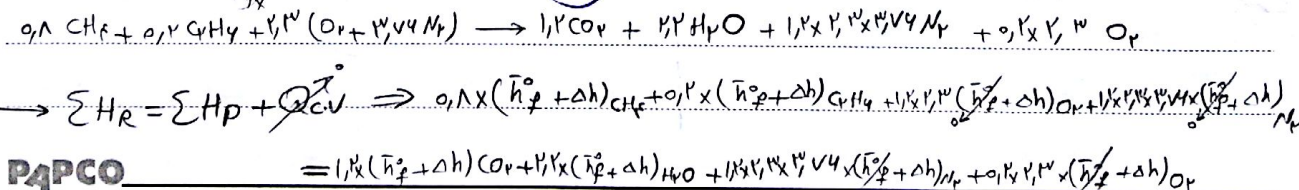 ۰٫۸ CH۴ + ۰٫۲ C۲H۶ + ۲٫۳ (O۲ + ۳٫۷۶ N۲) → ۱٫۲ CO۲ + ۲٫۲ H۲O + ۱٫۲ × ۲٫۳ × ۳٫۷۶ N۲ + ۰٫۲ × ۲٫۳ O۲
→ ΣHR = ΣHP + Qc.v ⇒ ۰٫۸ × (h̄°f + Δh)CH۴ + ۰٫۲ × (h̄°f + Δh)C۲H۶ + ۱٫۲ × ۲٫۳ (h̄°f + Δh)O۲ + ۱٫۲ × ۲٫۳ × ۳٫۷۶ × (h̄°f + Δh)N۲
PAPCO = ۱٫۲ × (h̄°f + Δh)CO۲ + ۲٫۲ × (h̄°f + Δh)H۲O + ۱٫۲ × ۲٫۳ × ۳٫۷۶ × (h̄°f + Δh)N۲ + ۰٫۲ × ۲٫۳ × (h̄°f + Δh)O۲